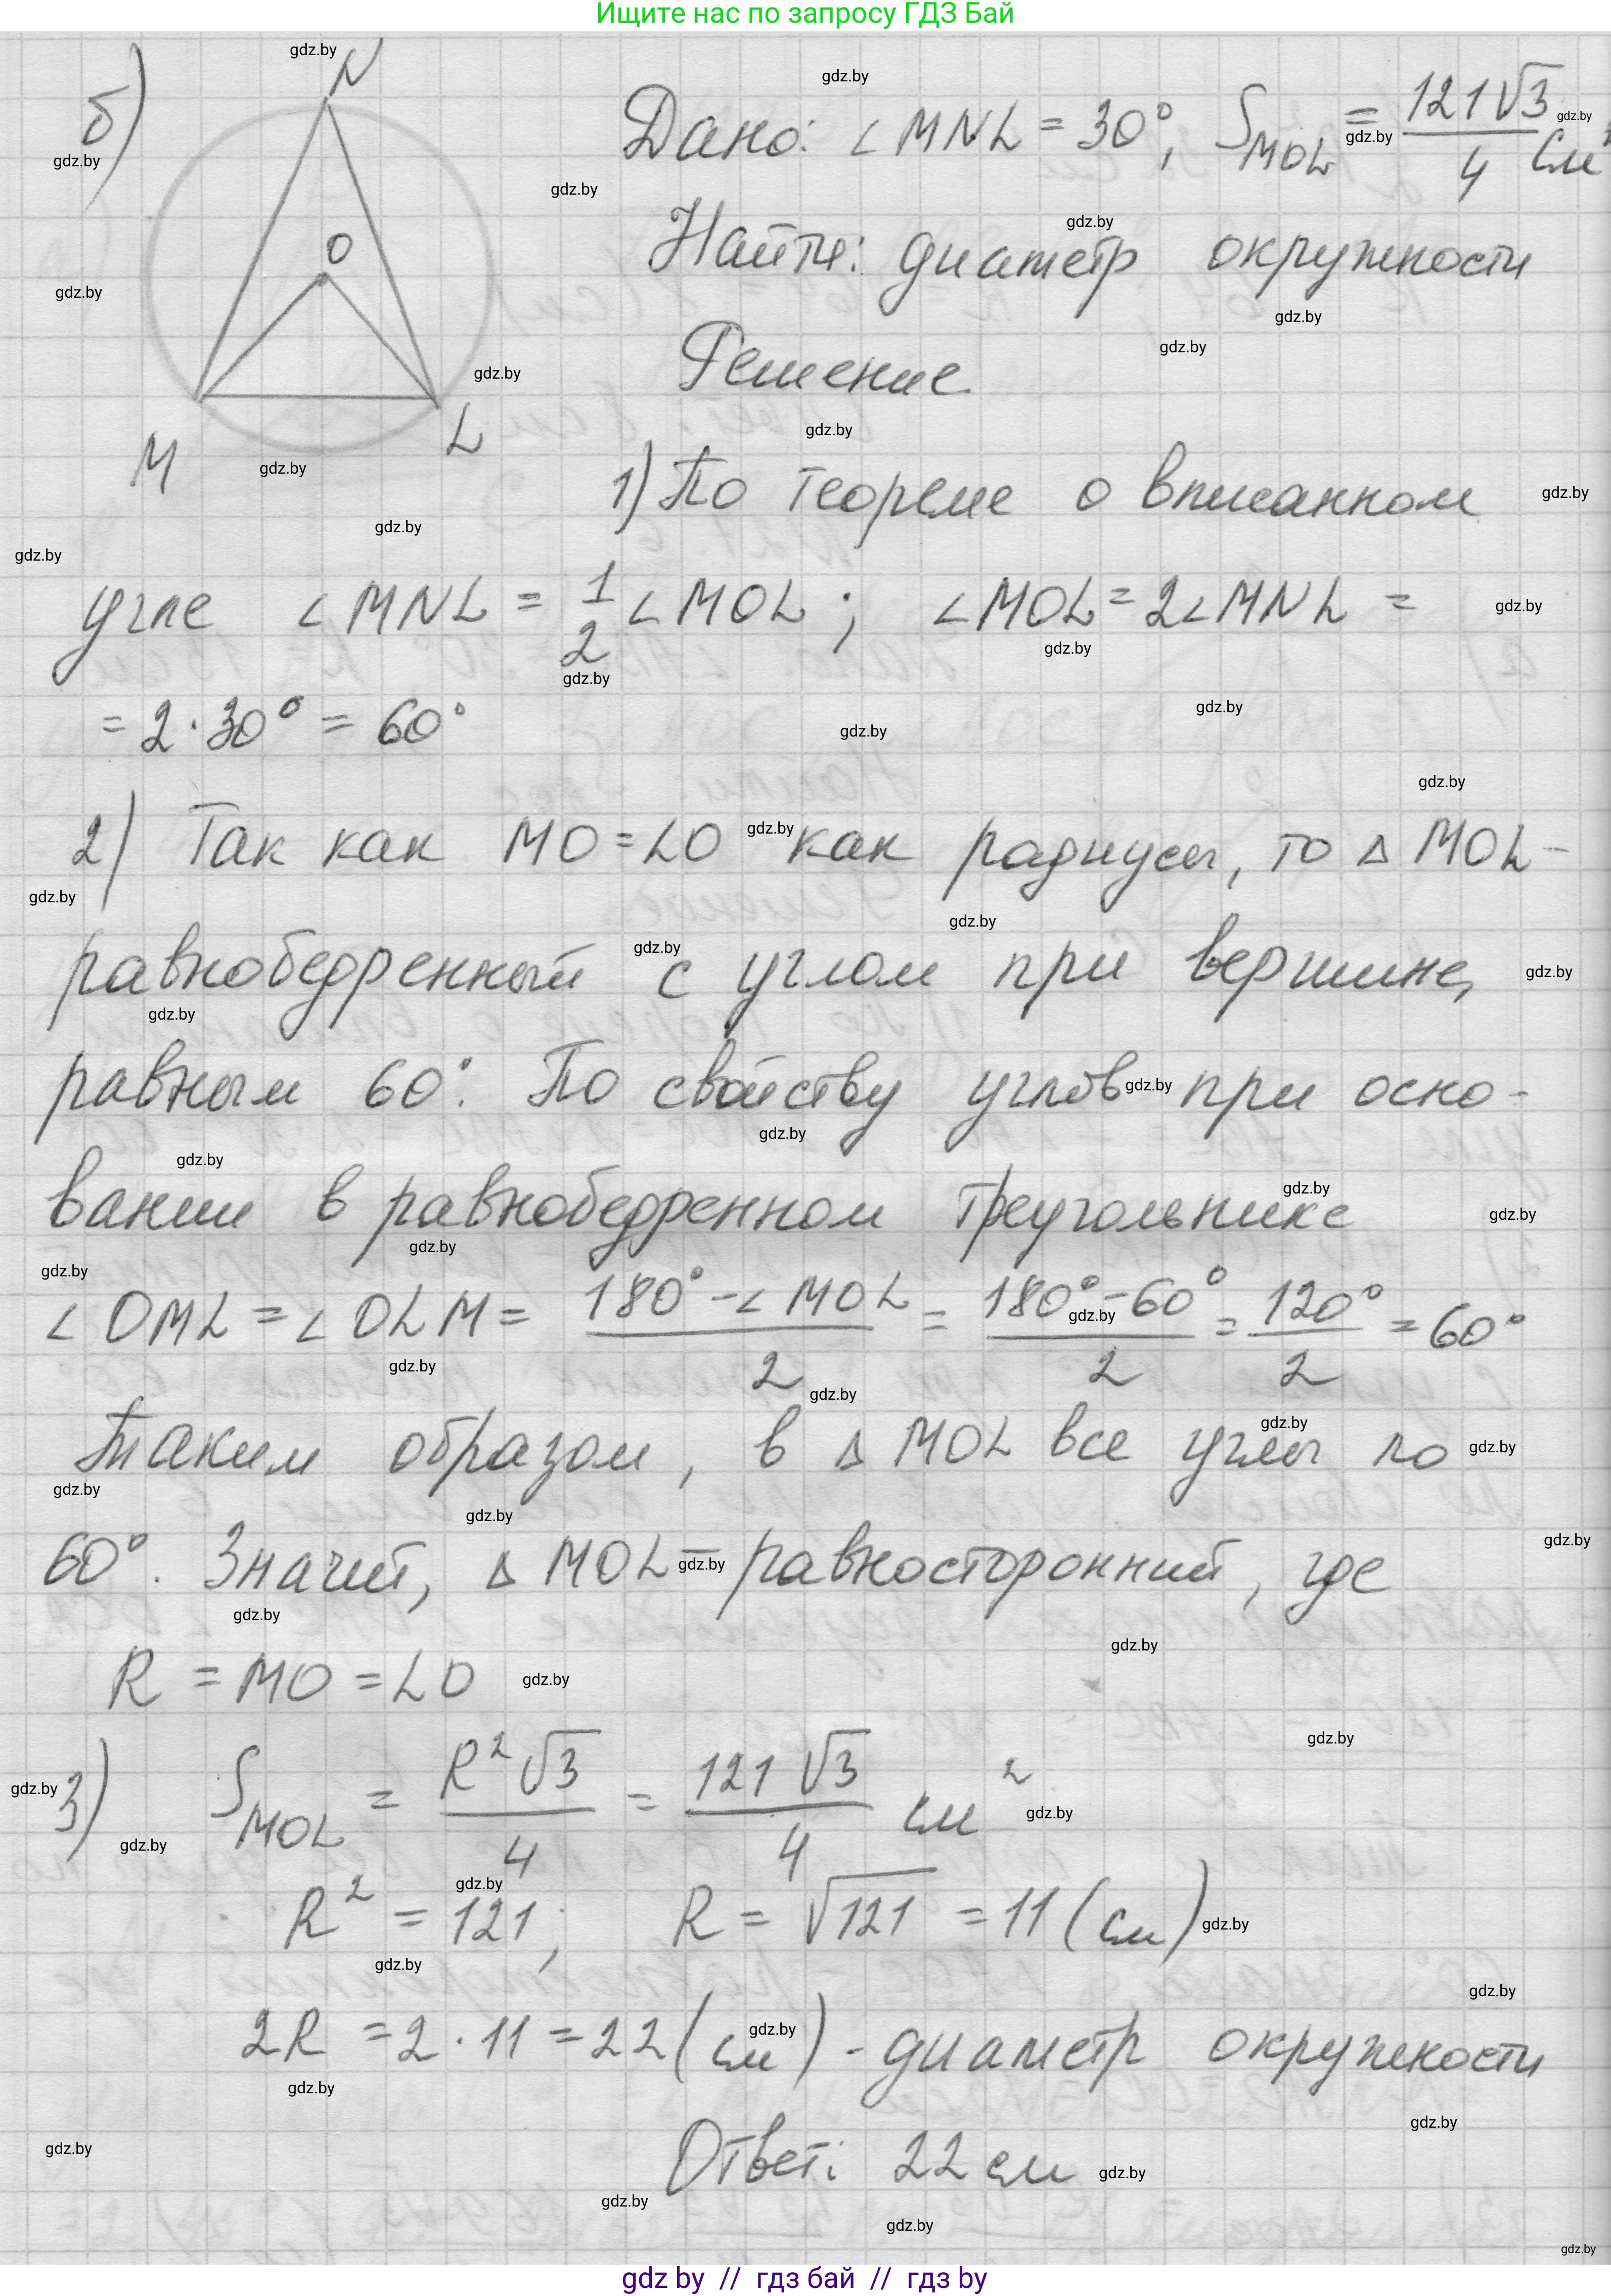 Ищите нас по запросу ГДЗ Бай
б)
N
O
M
L
Дано: ∠MNL = 30°, S_MOL = 121√3/4 см²
Найти: диаметр окружности
Решение
1) По теореме о вписанном
угле ∠MNL = 1/2 ∠MOL; ∠MOL = 2∠MNL =
= 2·30° = 60°
2) Так как MO = LO как радиусы, то △MOL -
равнобедренный с углом при вершине,
равным 60°. По свойству углов при осно-
вании в равнобедренном треугольнике
∠OML = ∠OLM = (180° - ∠MOL)/2 = (180° - 60°)/2 = 120°/2 = 60°
Таким образом, в △MOL все углы по
60°. Значит, △MOL - равносторонний, где
R = MO = LO
3) S_MOL = R²√3/4 = 121√3/4 см²
R² = 121; R = √121 = 11 (см)
2R = 2·11 = 22 (см) - диаметр окружности
Ответ: 22 см
gdz.by
gdz by // гдз бай // гдз by